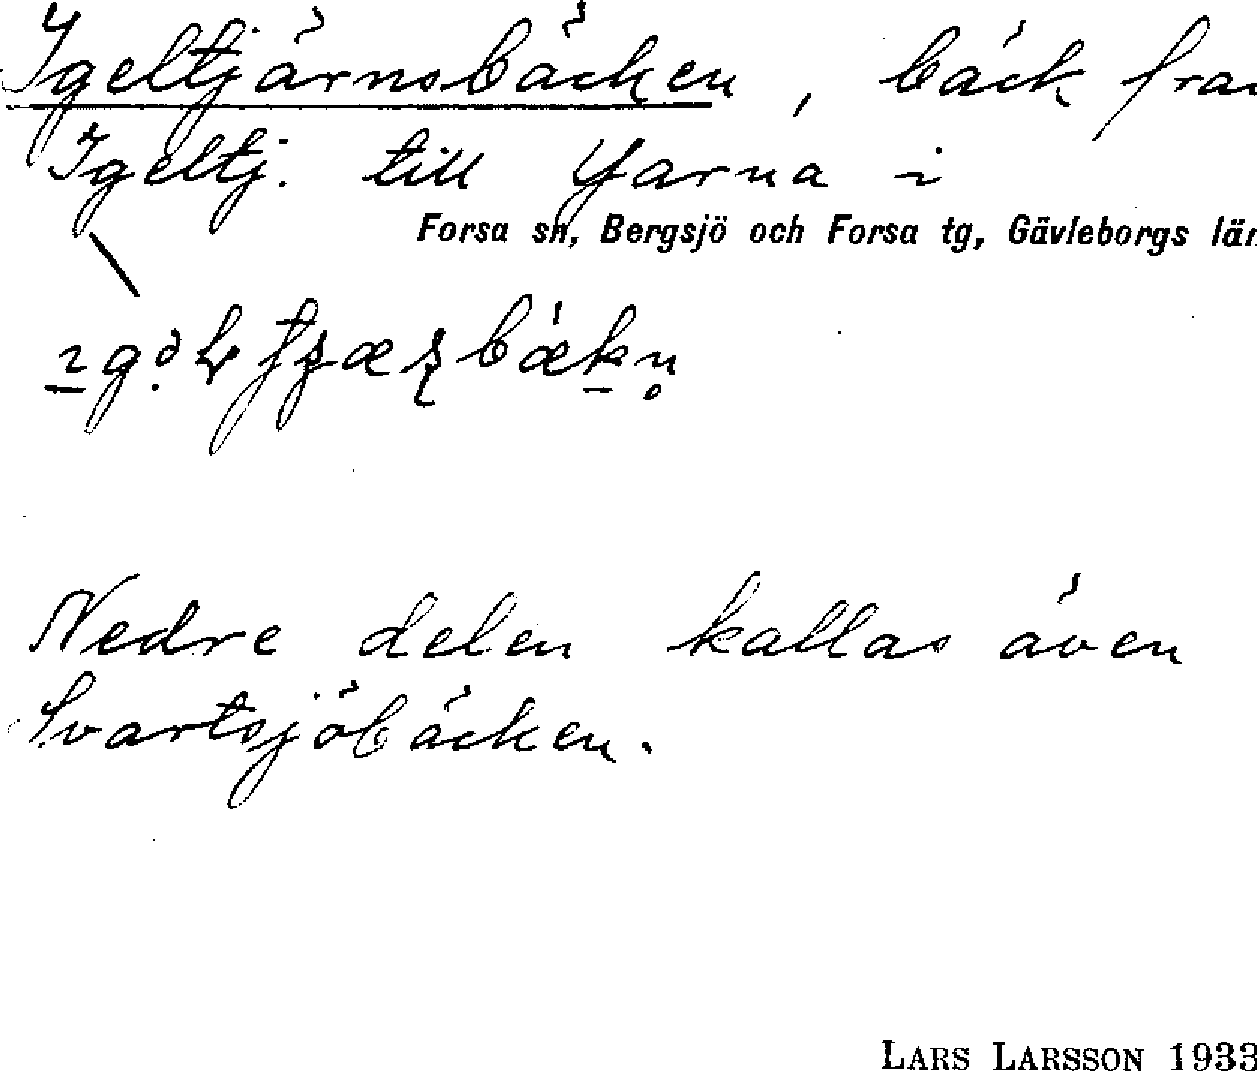 Igeltjärnsbäcken, bäck frå
Igeltj. till Yarna i
Forsa sn, Bergsjö och Forsa tg, Gävleborgs län
Nedre delen kallas även
Svartsjöbäcken.
LARS LARSSON 1933